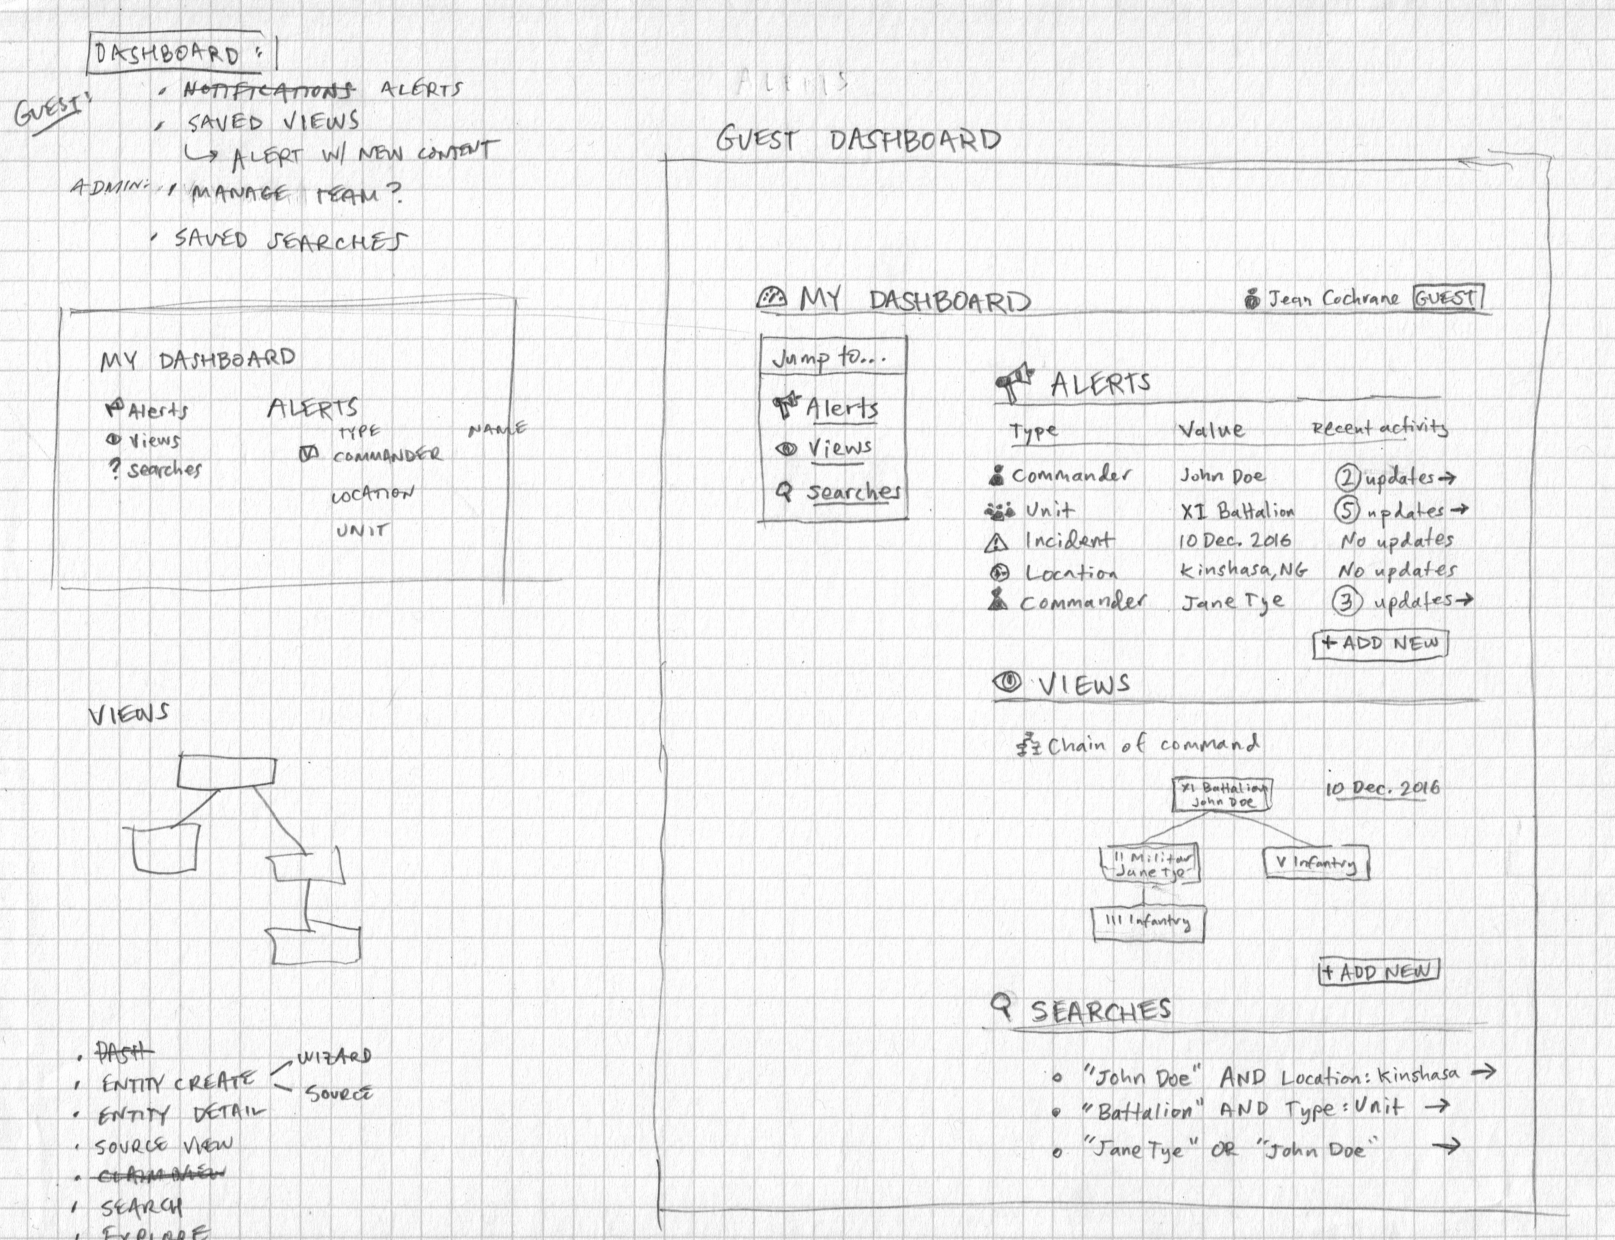 DASHBOARD:
GUEST:
• NOTIFICATIONS ALERTS
• SAVED VIEWS
↳ ALERT W/ NEW CONTENT
ADMIN: • MANAGE TEAM?
• SAVED SEARCHES
MY DASHBOARD
Alerts
Views
? Searches
ALERTS
TYPE NAME
COMMANDER
LOCATION
UNIT
VIEWS
• DASH
• ENTITY CREATE
WIZARD
SOURCE
• ENTITY DETAIL
• SOURCE VIEW
• CLAIM VIEW
• SEARCH
• EXPLORE
ALERTS
GUEST DASHBOARD
MY DASHBOARD
Jean Cochrane GUEST
Jump to...
Alerts
Views
Searches
ALERTS
Type Value Recent activity
Commander John Doe 2 updates →
Unit XI Battalion 5 updates →
Incident 10 Dec. 2016 No updates
Location Kinshasa, NG No updates
Commander Jane Tye 3 updates →
+ ADD NEW
VIEWS
Chain of command
XI Battalion
John Doe
10 Dec. 2016
II Militar
Jane Tye
V Infantry
III Infantry
+ ADD NEW
SEARCHES
• "John Doe" AND Location: Kinshasa →
• "Battalion" AND Type: Unit →
• "Jane Tye" OR "John Doe" →